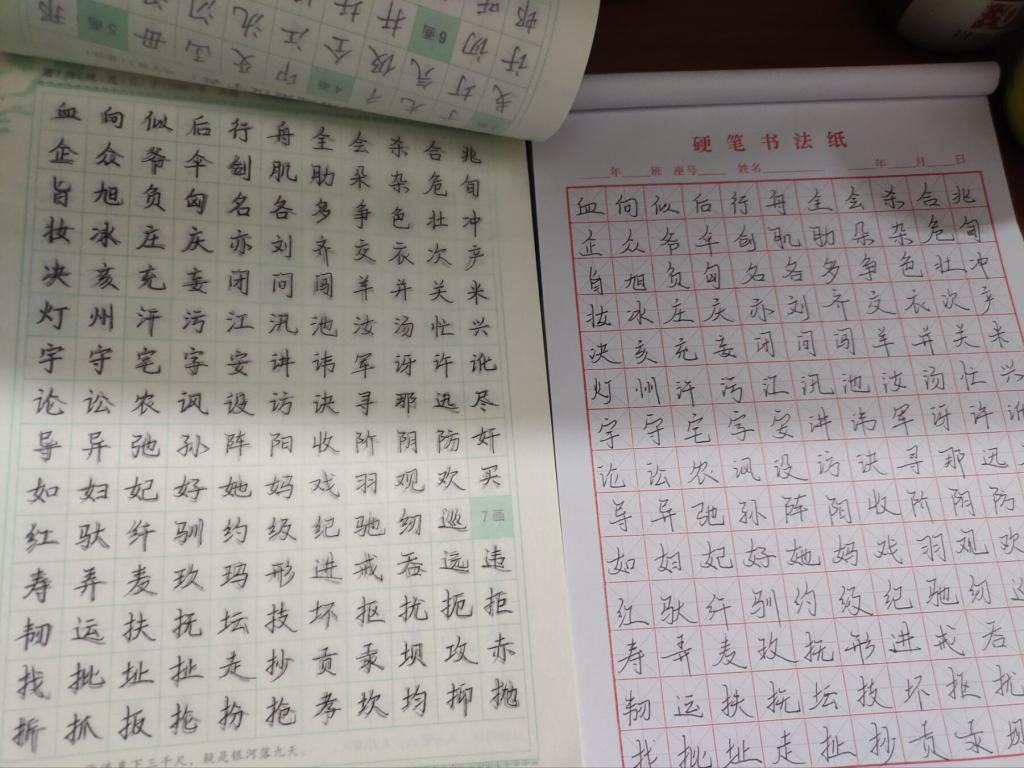 血向似后行舟全会杀合兆
企众爷伞创肌助朵杂危旬
旨旭负匈名各多争色壮冲
妆冰庄庆亦刘齐交衣次产
决亥充妄闭问闯羊并关米
灯州汗污江汛池汝汤忙兴
宇守宅字安讲讳军讶许讹
论讼农讽设访诀寻那迅尽
导异弛孙阵阳收阶阴防奸
如妇妃好她妈戏羽观欢买
红驮纤驯约级纪驰纫巡 7画
寿弄麦玖玛形进戒吞远违
韧运扶抚坛技坏抠扰扼拒
找批址扯走抄贡汞坝攻赤
折抓扳抡扮抢孝坎均抑抛
直下三千尺，疑是银河落九天。
硬笔书法纸
年 班 座号 姓名 年 月 日
血向似后行舟全会杀合兆
企众爷伞创肌助朵杂危旬
旨旭负匈名各多争色壮冲
妆冰庄庆亦刘齐交衣次产
决亥充妄闭问闯羊并关米
灯州汗污江汛池汝汤忙兴
宇守宅字安讲讳军讶许讹
论讼农讽设访诀寻那迅
导异弛孙阵阳收阶阴防
如妇妃好她妈戏羽观欢
红驮纤驯约级纪驰纫巡
寿弄麦玖抚形进戒吞
韧运扶抚坛技坏抠扰
找批址走扯抄贡汞坝